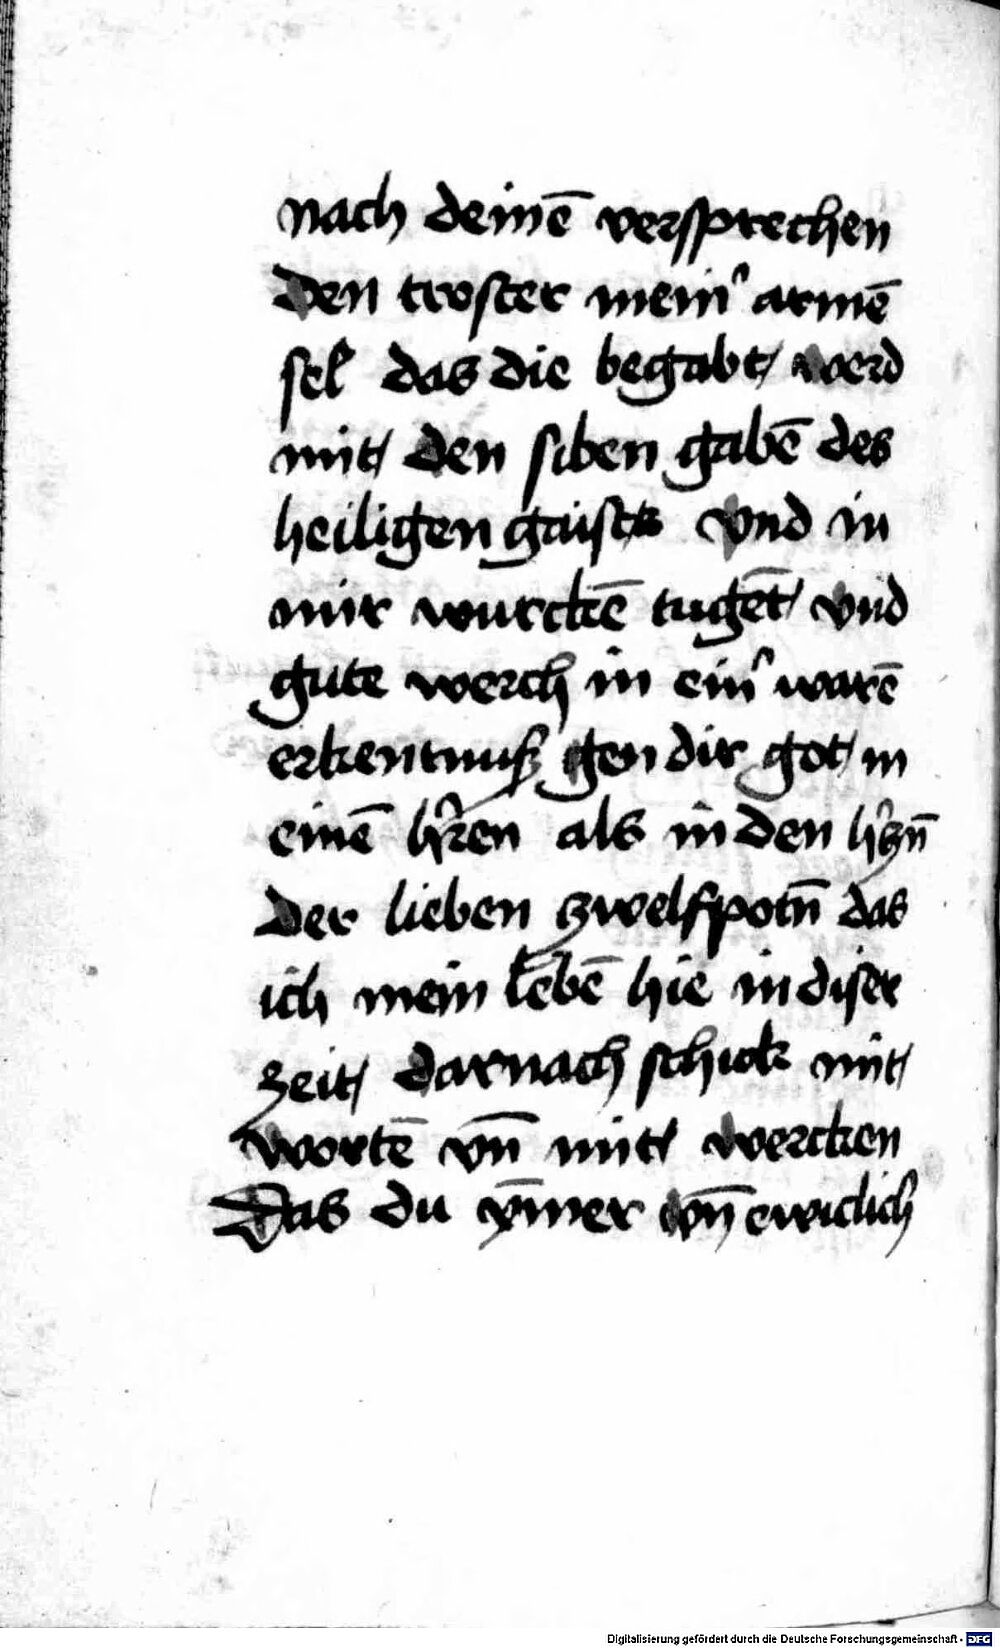 nach deinē versprechen
Den troster mein᷑ armē
sel das die begabt werd
mit den siben gabē des
heiligen gaistz vnd in
mir wurckē tugēt vnd
gute werch in ein᷑ warē
erkentnuß gen dir got in
einē h᷑zen als in den h᷑czn̄
Der lieben zwelfpotn̄ das
ich mein lebē hie in diser
zeit darnach schick mit
wortē vn̄ mit wercken
Das du ȳmer vn̄ ewiclich
Digitalisierung gefördert durch die Deutsche Forschungsgemeinschaft - DFG